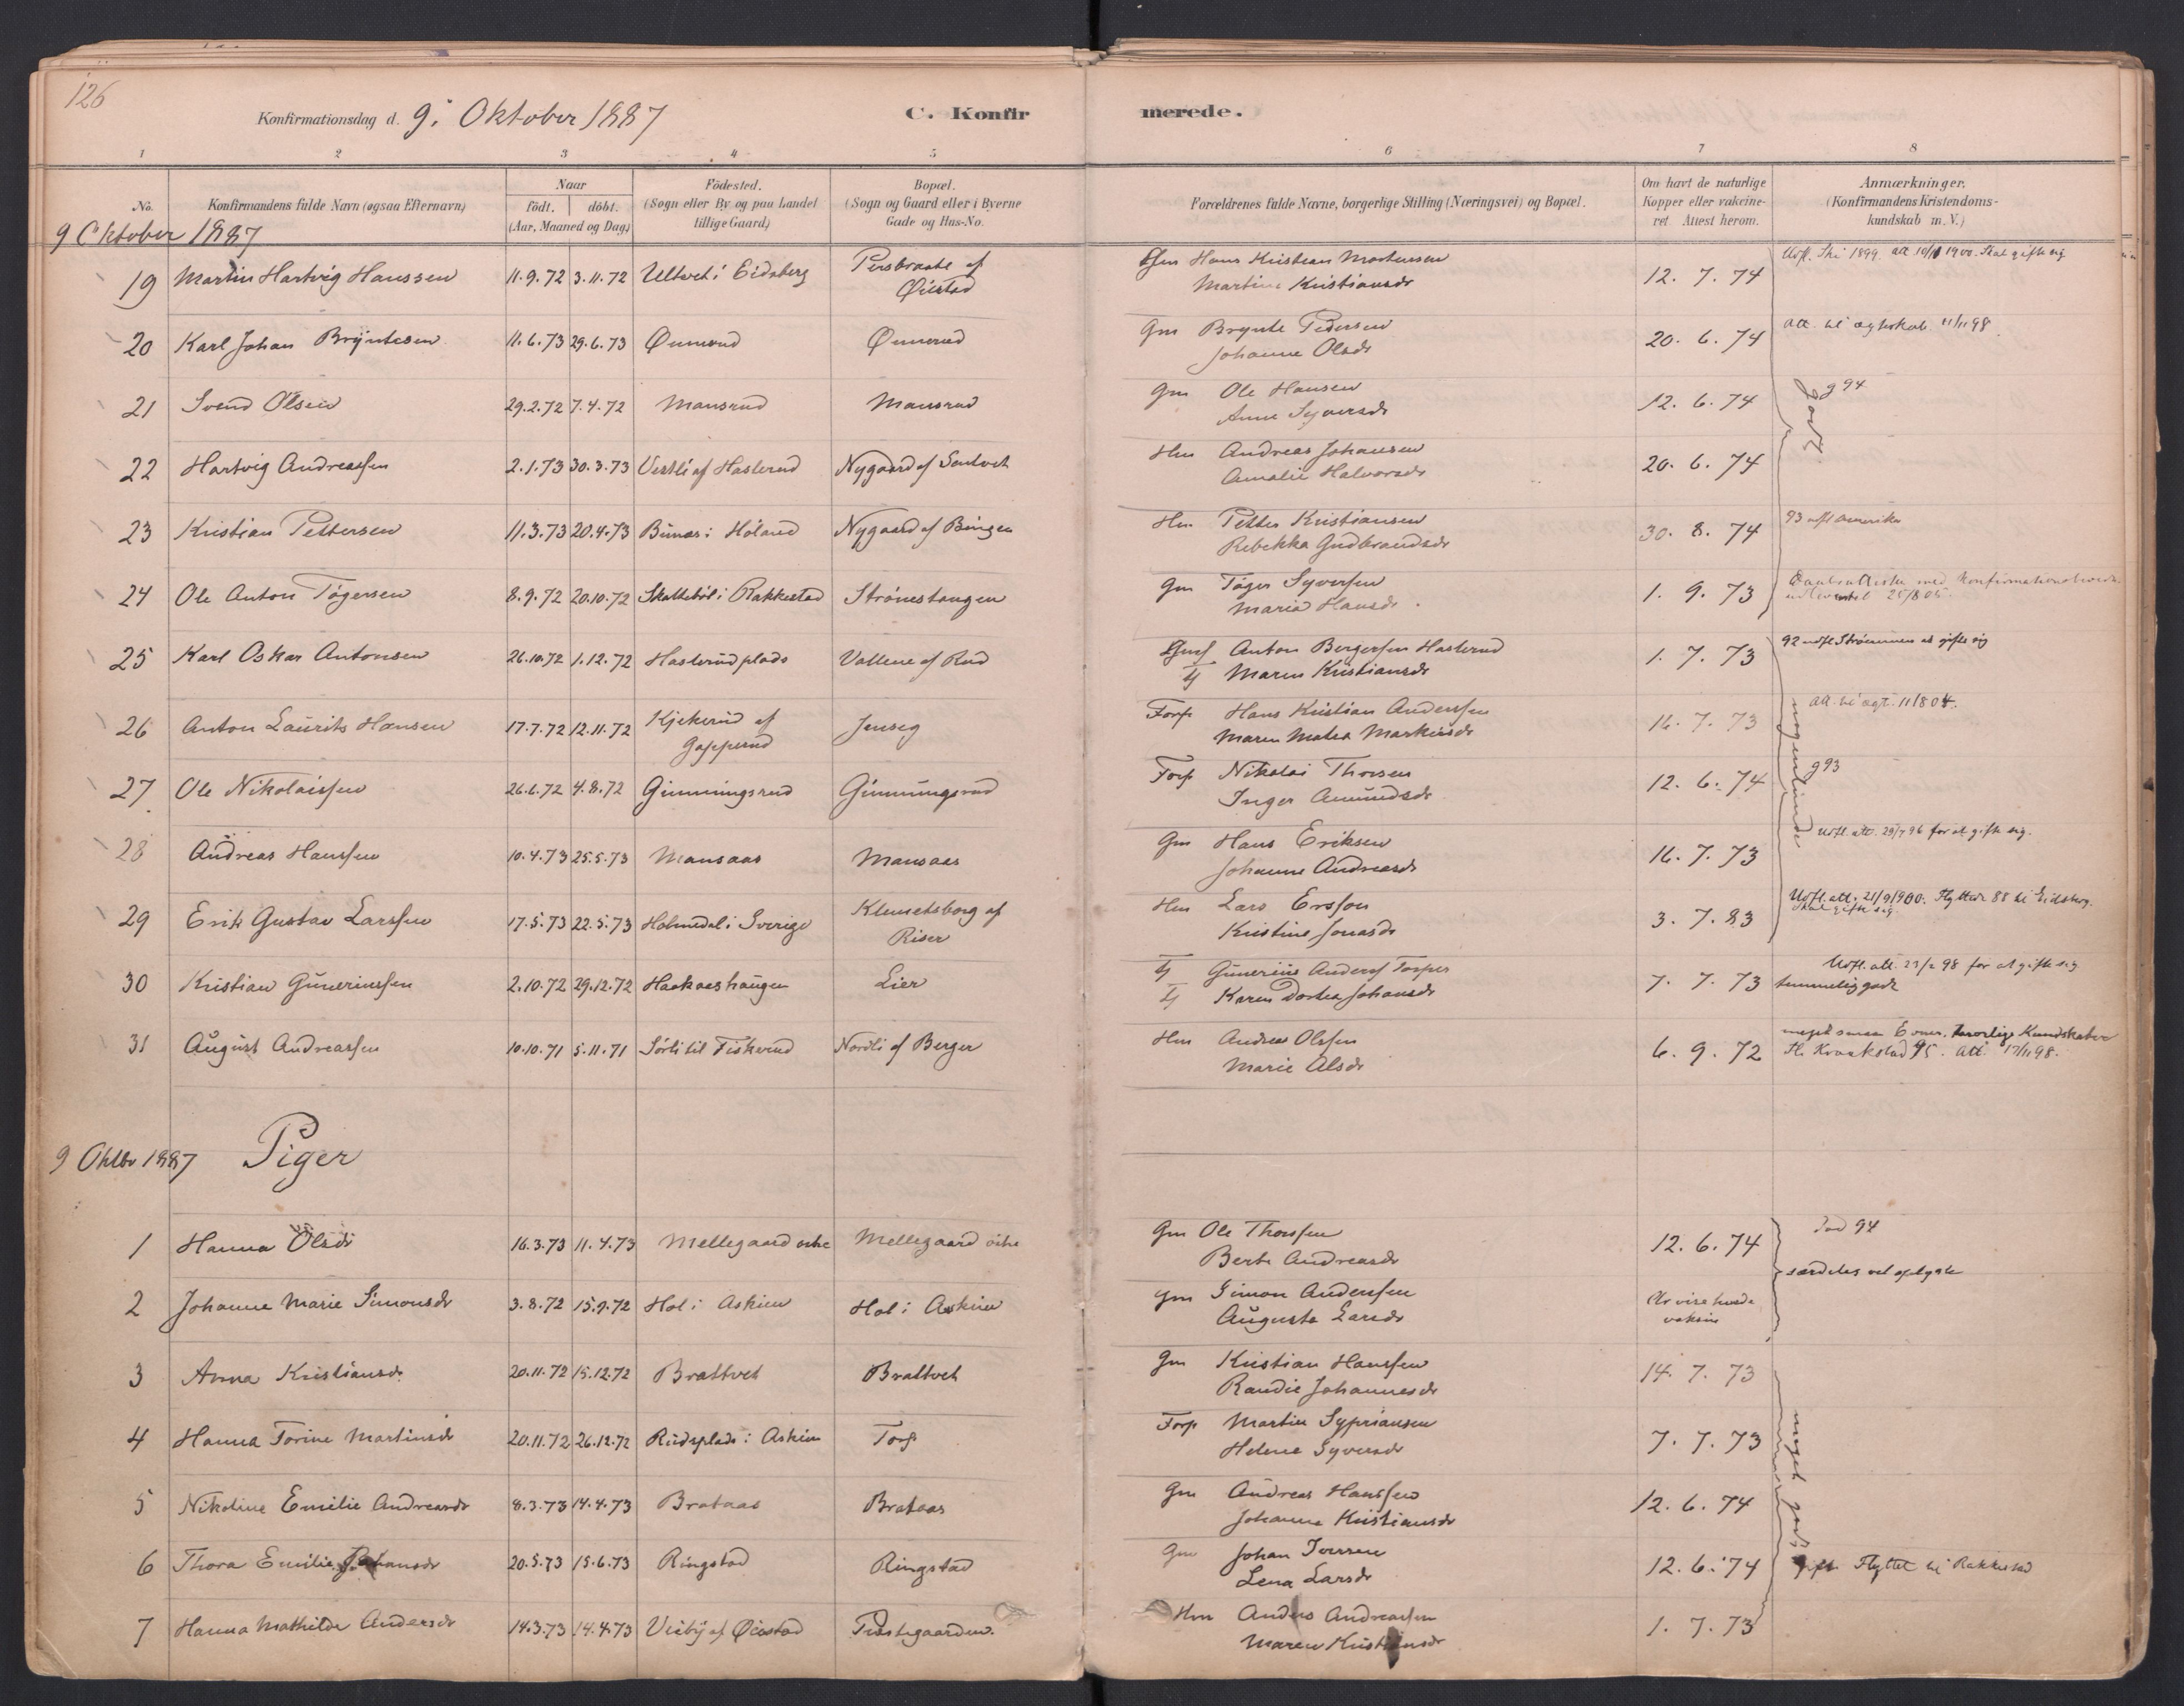 126
Konfirmationsdag d. 9. Oktober 1887
C. Konfir merede.
1 2 3 4 5 6 7 8
No.
Konfirmandens fulde Navn (ogsaa Efternavn)
Naar
födt. döbt.
(Aar, Maaned og Dag)
Födested.
(Sogn eller By og paa Landet
tillige Gaard)
Bopæl.
(Sogn og Gaard eller i Byerne
Gade og Hus-No.
Forældrenes fulde Navne, borgerlige Stilling (Næringsvei) og Bopæl.
Om havt de naturlige
Kopper eller vakcine-
ret Attest herom.
Anmærkninger.
(Konfirmandens Kristendoms-
kundskab m. V.)
9 Oktober 1887
19 Martin Hartvig Hanssen 11.9.72 3.11.72 Ultvet i Eidsberg Persbraate af Gm Hans Kristian Mortensen 12. 7. 74 Udfl. Ski 1899. att 1900. Skal gifte sig
Øistad Martine Kristiansdr
20 Karl Johan Bryntesen 11.6.73 29.6.73 Ønnerud Ønnerud Gm Brynte Pedersen 20. 6. 74 Att. til ægteskab 11/11 98
Johanne Olsdr
21 Svend Olsen 29.2.72 7.4.72 Mansrud Mansrud Gm Ole Hansen 12. 6. 74 godt g 94
Anne Syversdr
22 Hartvig Andreassen 2.1.73 30.3.73 Vestli af Haslerud Nygaard af Sentvet Hm Andreas Johansen 20. 6. 74
Amalie Halvorsdr
23 Kristian Pettersen 11.3.73 20.4.73 i Höland Nygaard af Bingen Hm Petter Kristiansen 30. 8. 74 93 udfl Amerika
Rebekka Gudbrandsdr
24 Ole Anton Tögersen 8.9.72 20.10.72 Skattebøl i Rakkestad Strönestangen Gm Töger Syversen 1. 9. 73 med Konfirmation
Maria Hansdr 25/8 05.
25 Karl Oskar Antonsen 26.10.72 1.12.72 Haslerudplads Vallene af Rud Gmf Anton Bergersen Haslerud 1. 7. 73 92 udfl Strømmen at gifte sig
Tj Maren Kristiansdr
26 Anton Laurits Hansen 17.7.72 12.11.72 Kjekerud af Jenseg Forp Hans Kristian Anderssen 16. 7. 73 nogenlunde att. til ægt. 11/8 04.
Gapperud Maren Matea Markusdr
27 Ole Nikolaissen 26.6.72 4.8.72 Gunningsrud Gunningsrud Forp Nikolai Thorsen 12. 6. 74 g 93
Inger Amundsdr
28 Andreas Hanssen 10.4.73 25.5.73 Mansaas Mansaas Gm Hans Eriksen 16. 7. 73 Udfl. att. 29/7 96 for at gifte sig.
Johanne Andreasdr
29 Erik Gustav Larssen 17.5.73 22.5.73 Holmedal i Sverige Klemetsborg af Hm Lars Ersson 3. 7. 83 Udfl. att. 21/9 1900. Flyttede 88 til Eidsberg.
Riser Kristine Jonasdr Skal gifte sig.
30 Kristian Gunerinssen 2.10.72 29.12.72 Haakaashaugen Lier Tj Gunerius Anders Torper 7. 7. 73 Udfl. att. 23/2 98 for at gifte sig
Tj Karen Dortea Johansdr temmelig godt
31 August Andreassen 10.10.71 5.11.71 Sörli til Fiskerud Nordli af Berger Hm Andreas Olssen 6. 9. 72 meget smaa Evner. Kundskaber
Marie Olsdr Fl. Kraakstad 95. Att. 17/11 98.
9 Oktbr 1887 Piger
1 Hanna Olsdr 16.3.73 11.4.73 Mellegaard östre Mellegaard östre Gm Ole Thorssen 12. 6. 74 Död 94
Berte Andreasdr særdeles vel oplyste
2 Johanne Marie Simonsdr 3.8.72 15.9.72 Hol i Askim Hol i Askim Gm Simon Anderssen
Augusta Larsdr
3 Anna Kristiansdr. 20.11.72 15.12.72 Brattvet Brattvet Gm Kristian Hanssen 14. 7. 73
Randie Johannesdr
4 Hanna Torine Martinsdr 20.11.72 26.12.72 Rudsplads i Askim Torp Forp Martin Sypriansen 7. 7. 73 meget godt
Helene Syversdr
5 Nikoline Emilie Andreasdr 8.3.73 14.4.73 Brataas Brataas Gm Andreas Hanssen 12. 6. 74
Johanne Kristiansdr
6 Thora Emilie Johansdr 20.5.73 15.6.73 Ringstad Ringstad Gm Johan Iversen 12. 6. 74 gift Flyttet til Rakkestad
Lena Larsdr
7 Hanna Mathilde Andersdr 14.3.73 14.4.73 Viebÿ af Øiestad Præstegaarden. Hm Anders Andreassen 1. 7. 73
Maren Kristiansdr